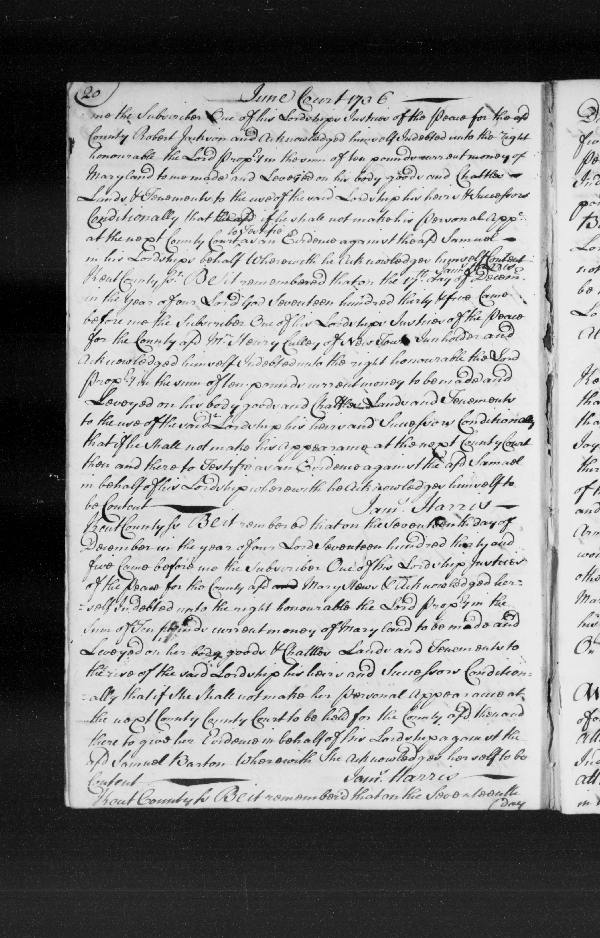 20
June Court 1736
me the Subscriber One of his Lordships Justices of the Peace for the afd
County Robert Jackson and Acknowledged himself Indebted unto the right
honourable the Lord Propry in the sum of ten pounds current money of
Maryland to me made and Leveyed on his body goods and Chattles
Lands & Tenements to the use of the said Lordship his heirs & Successors
Conditionally that if he shall not make his Personal App:
to Testifie
at the next County Court as an Evidence against the afd Samuel
in his Lordships behalf Wherewith he Acknowledges himself Content
Jams. Harris
Kent County Ss. Be it remembered that on the 17th. day of Decem:
in the year of our Lord God Seventeen hundred thirty & five Came
before me the Subscriber One of his Lordships Justices of the Peace
for the County afd Mr. Henry Culley of New Town Innholder and
Acknowledged himself Indebted unto the right honourable the Lord
Propry in the sum of ten pounds current money to be made and
Leveyed on his body goods and Chattles Lands and Tenements
to the use of the said Lordship his heirs and Successors Conditionally
that if he Shall not make his Appearance at the next County Court
then and there to Testifie as an Evidence against the afd Samuel
in behalf of his Lordship wherewith he Acknowledges himself to
be Content Jams. Harris
Kent County Ss Be it remembered that on the Seventeenth day of
December in the year of our Lord Seventeen hundred thirty and
five Came before me the Subscriber One of his Lordship Justices
of the Peace for the County afd Mary News & Acknowledged her=
=self Indebted unto the right honourable the Lord Propry in the
Sum of Ten pounds current money of Maryland to be made and
Leveyed on her body goods & Chattles Lands and Tenements to
the use of the said Lordship his heirs and Successors Condition=
=ally that if She Shall not make her Personal Appearance at
the next County County Court to be held for the County afd then and
there to give her Evidence in behalf of his Lordship against the
afd Samuel Barton Wherewith She Acknowledges herself to be
Content Jams. Harris
Kent County Ss Be it rememberd that on the Seventeenth
day